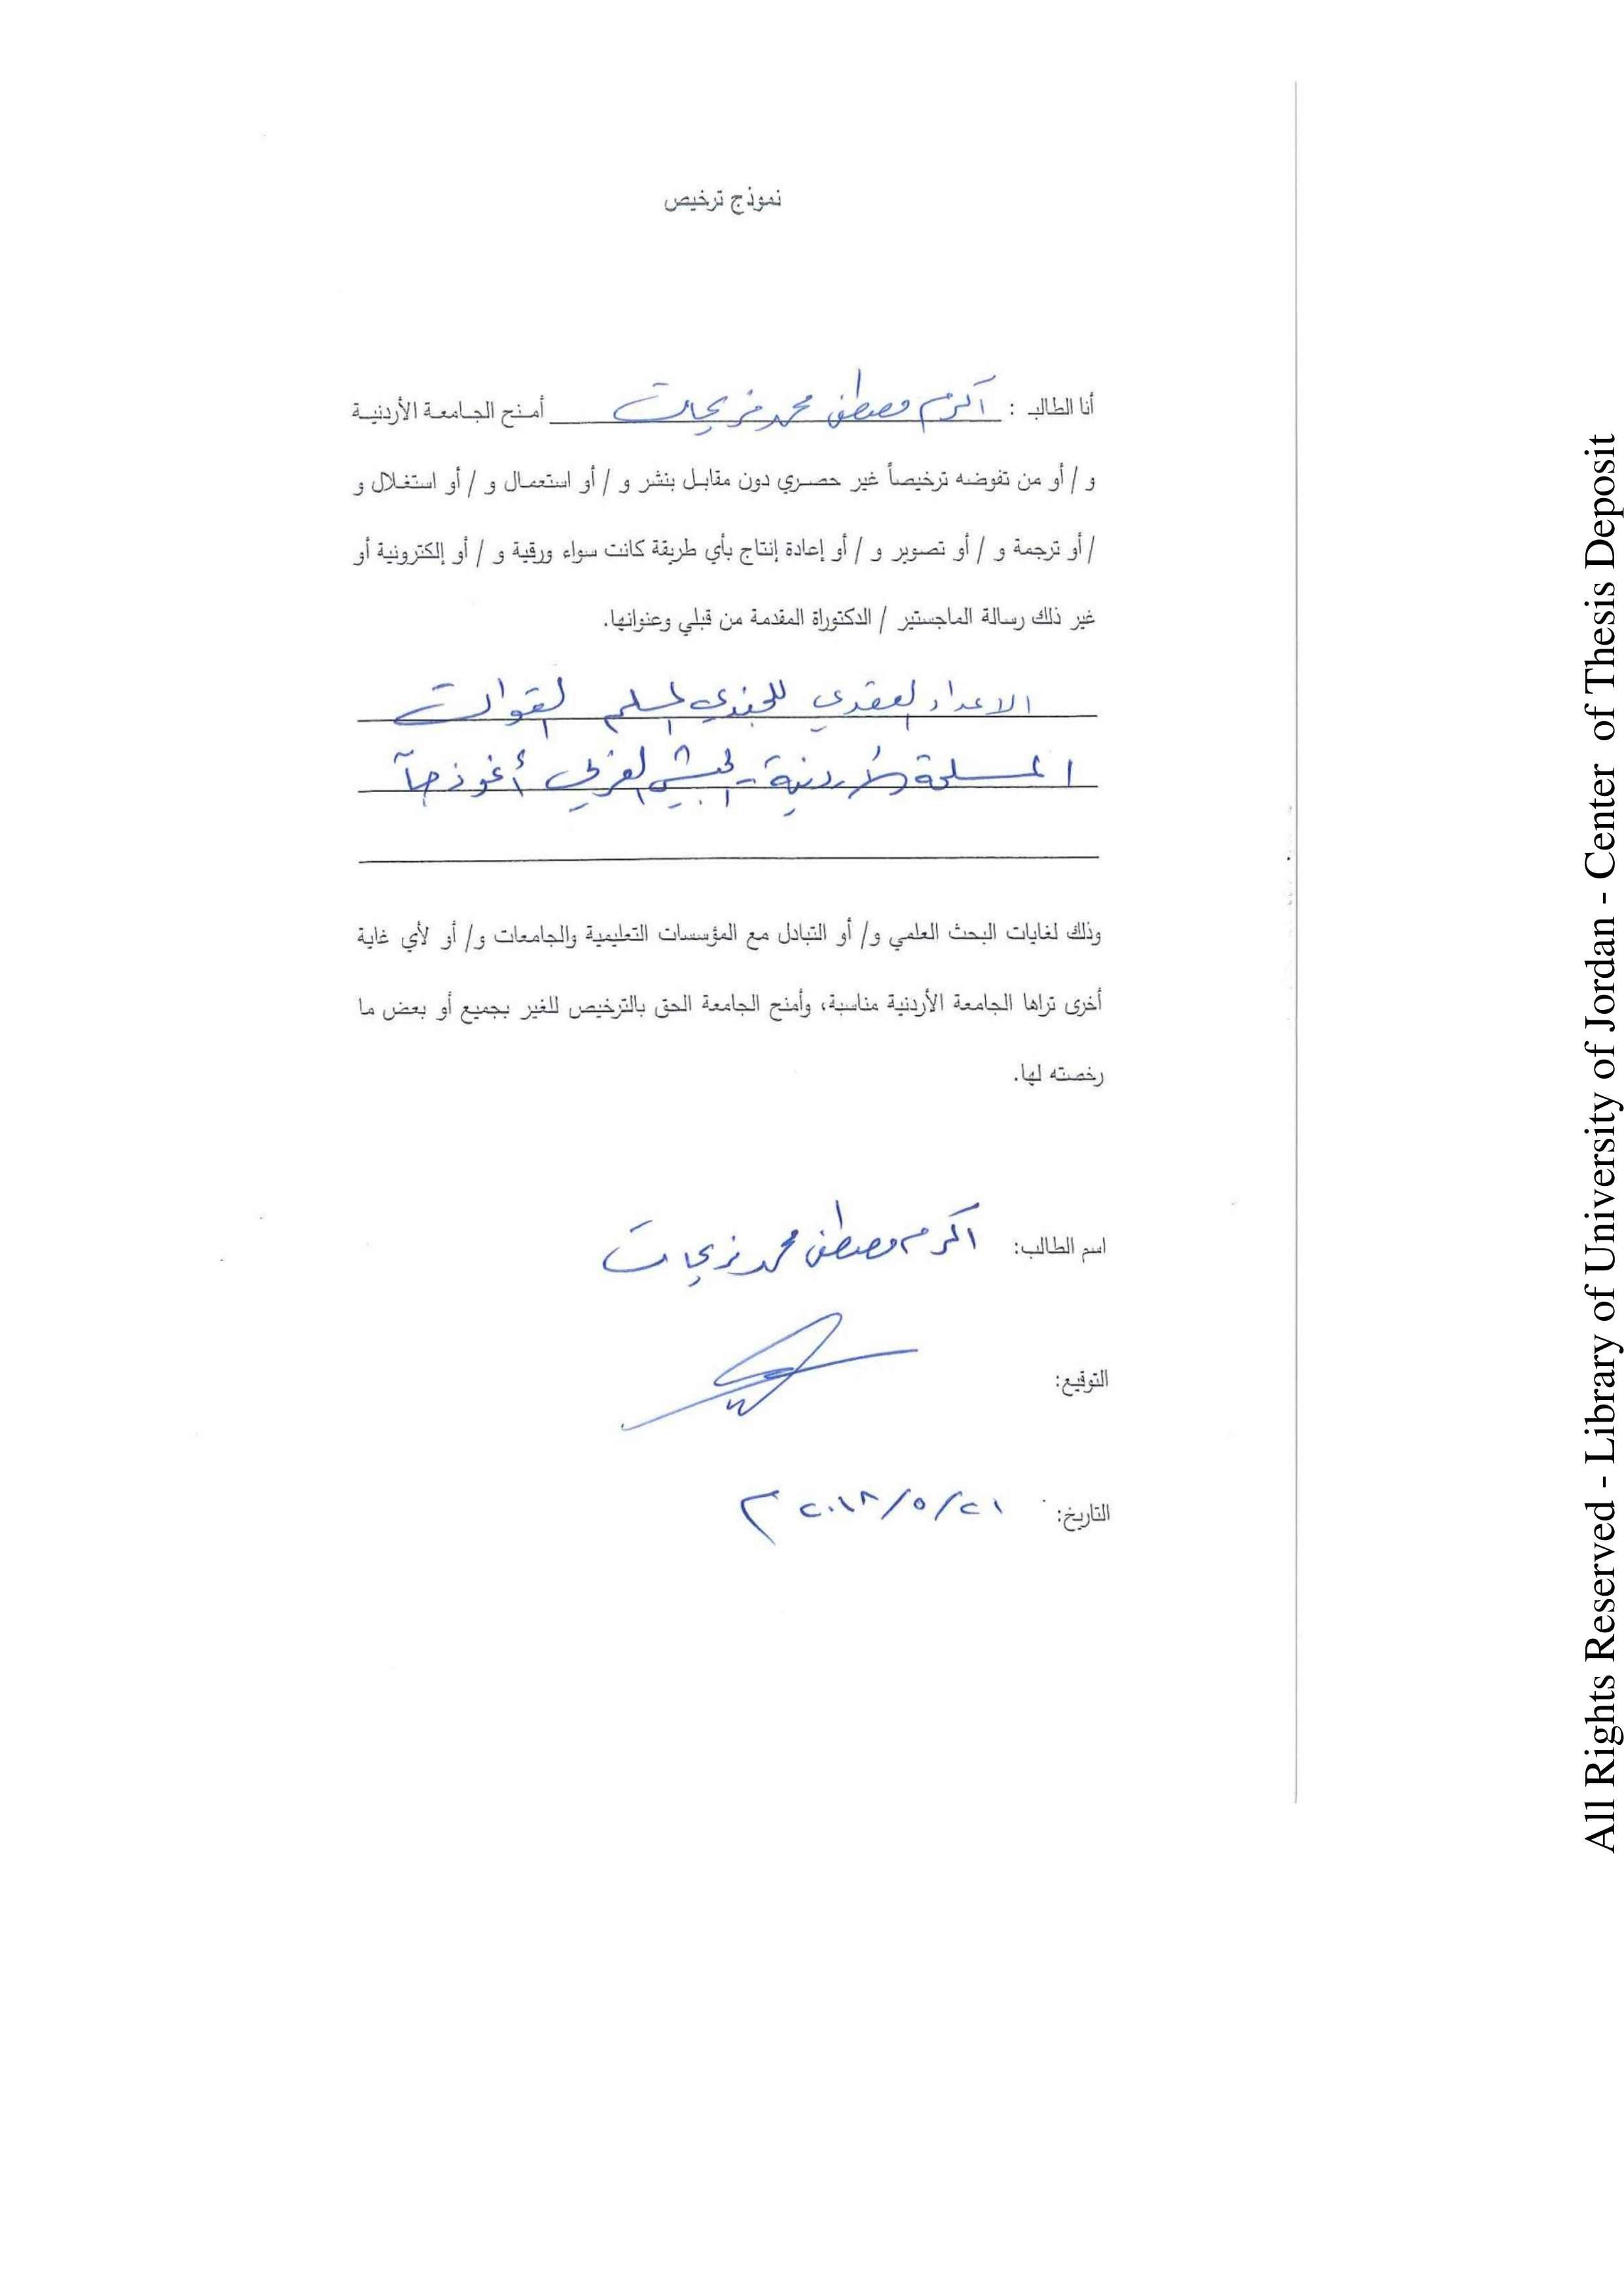 نموذج ترخيص
أنا الطالب : اكرم مصطفى محمد فريحات أمنح الجامعة الأردنية
و / أو من تفوضه ترخيصاً غير حصري دون مقابل بنشر و / أو استعمال و / أو استغلال و
/ أو ترجمة و / أو تصوير و / أو إعادة إنتاج بأي طريقة كانت سواء ورقية و / أو إلكترونية أو
غير ذلك رسالة الماجستير / الدكتوراة المقدمة من قبلي وعنوانها.
الاعداد العقدي للجندي المسلم القوات
المسلحة الأردنية - الجيش العربي أنموذجاً
وذلك لغايات البحث العلمي و/ أو التبادل مع المؤسسات التعليمية والجامعات و/ أو لأي غاية
أخرى تراها الجامعة الأردنية مناسبة، وأمنح الجامعة الحق بالترخيص للغير بجميع أو بعض ما
رخصته لها.
اسم الطالب: اكرم مصطفى محمد فريحات
التوقيع:
التاريخ: ٢١/٥/٢٠١٨ م
All Rights Reserved - Library of University of Jordan - Center of Thesis Deposit